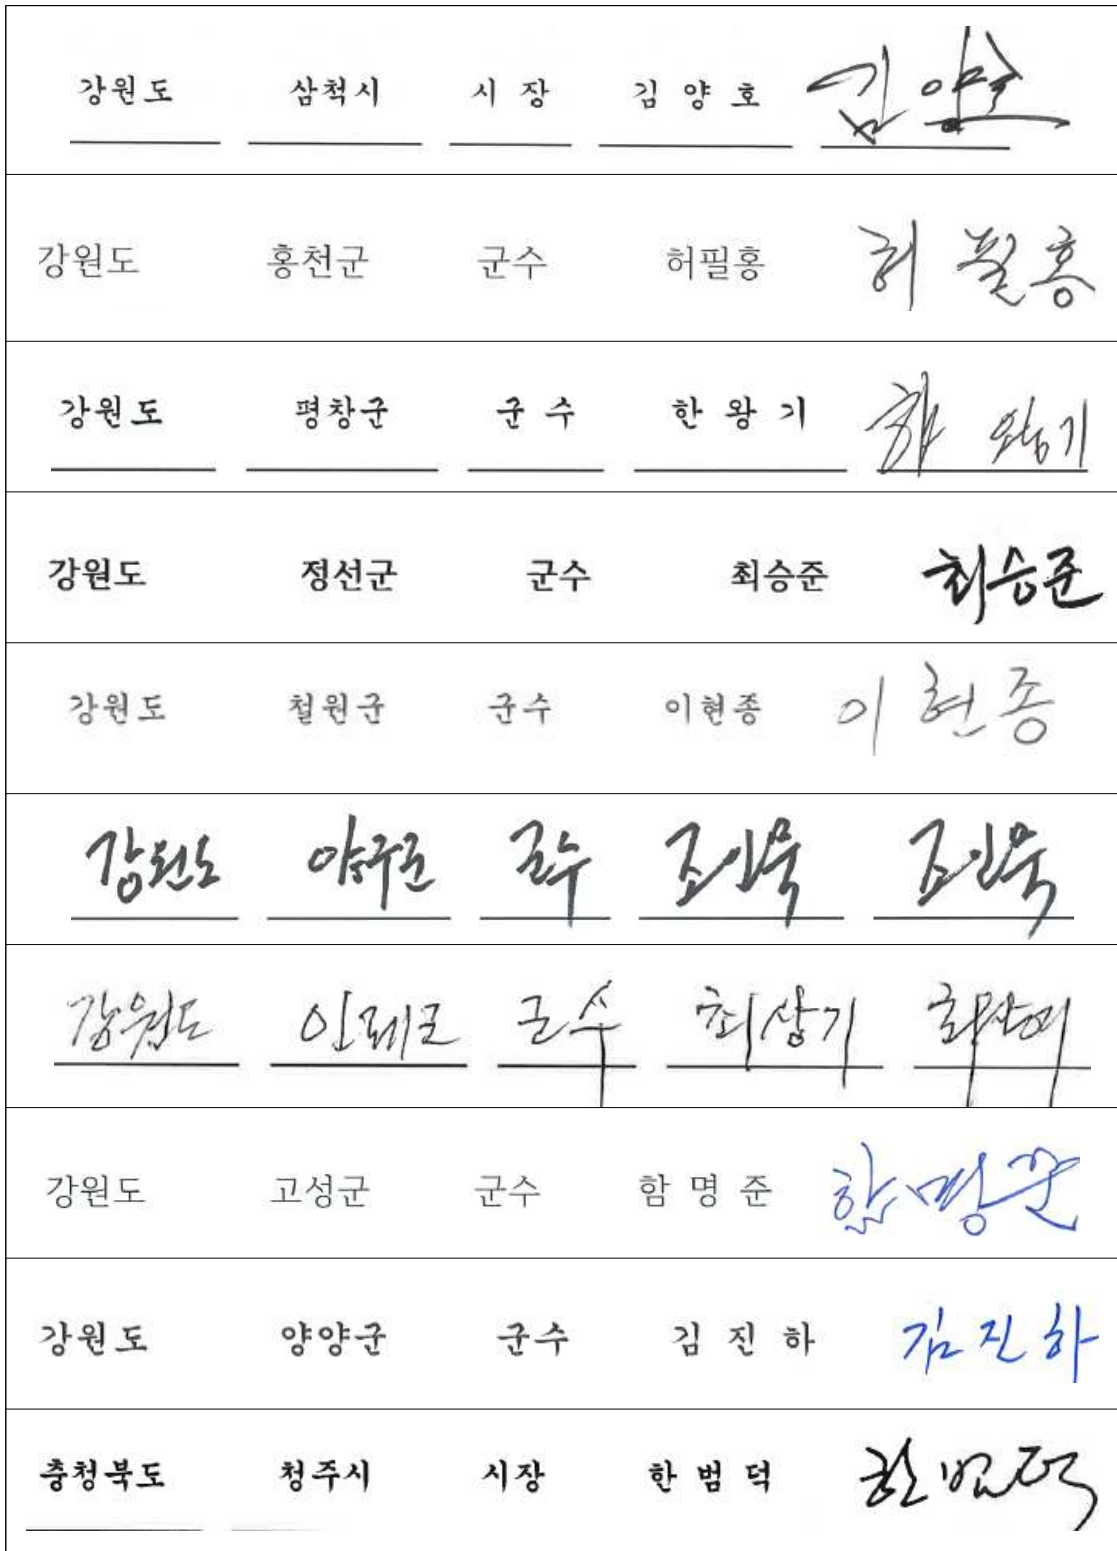 강원도 삼척시 시장 김양호 김양호
강원도 홍천군 군수 허필홍 허필홍
강원도 평창군 군수 한왕기 한왕기
강원도 정선군 군수 최승준 최승준
강원도 철원군 군수 이현종 이현종
강원도 양구군 군수 조인묵 조인묵
강원도 인제군 군수 최상기 최상기
강원도 고성군 군수 함명준 함명준
강원도 양양군 군수 김진하 김진하
충청북도 청주시 시장 한범덕 한범덕